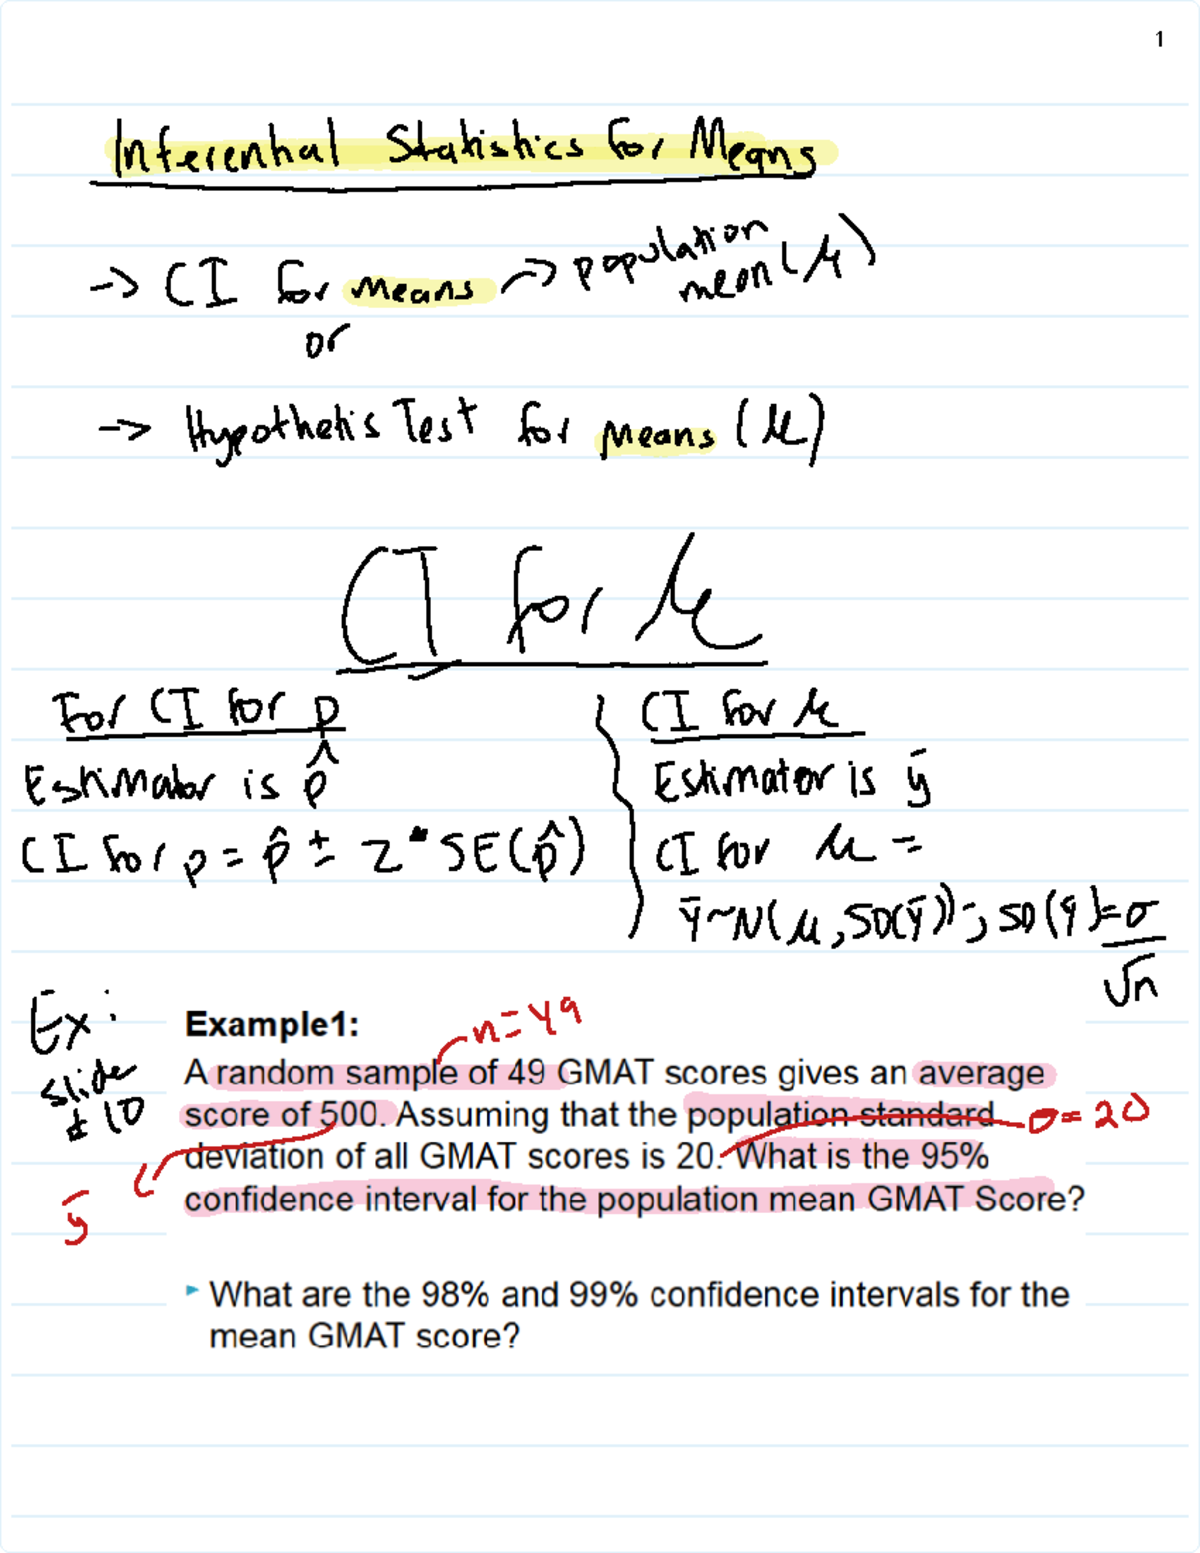 1
Inferential Statistics for Means
-> CI for Means -> population mean (μ)
or
-> Hypothetis Test for Means (μ)
CI for μ
For CI for p
Estimator is p̂
CI for p = p̂ ± Z* SE(p̂)
CI for μ
Estimator is ȳ
CI for μ =
ȳ~N(μ, SD(ȳ)); SD(ȳ)=σ/√n
Ex:
slide
# 10
Example1:
n=49
A random sample of 49 GMAT scores gives an average
score of 500. Assuming that the population standard
σ=20
deviation of all GMAT scores is 20. What is the 95%
confidence interval for the population mean GMAT Score?
ȳ
▸ What are the 98% and 99% confidence intervals for the
mean GMAT score?